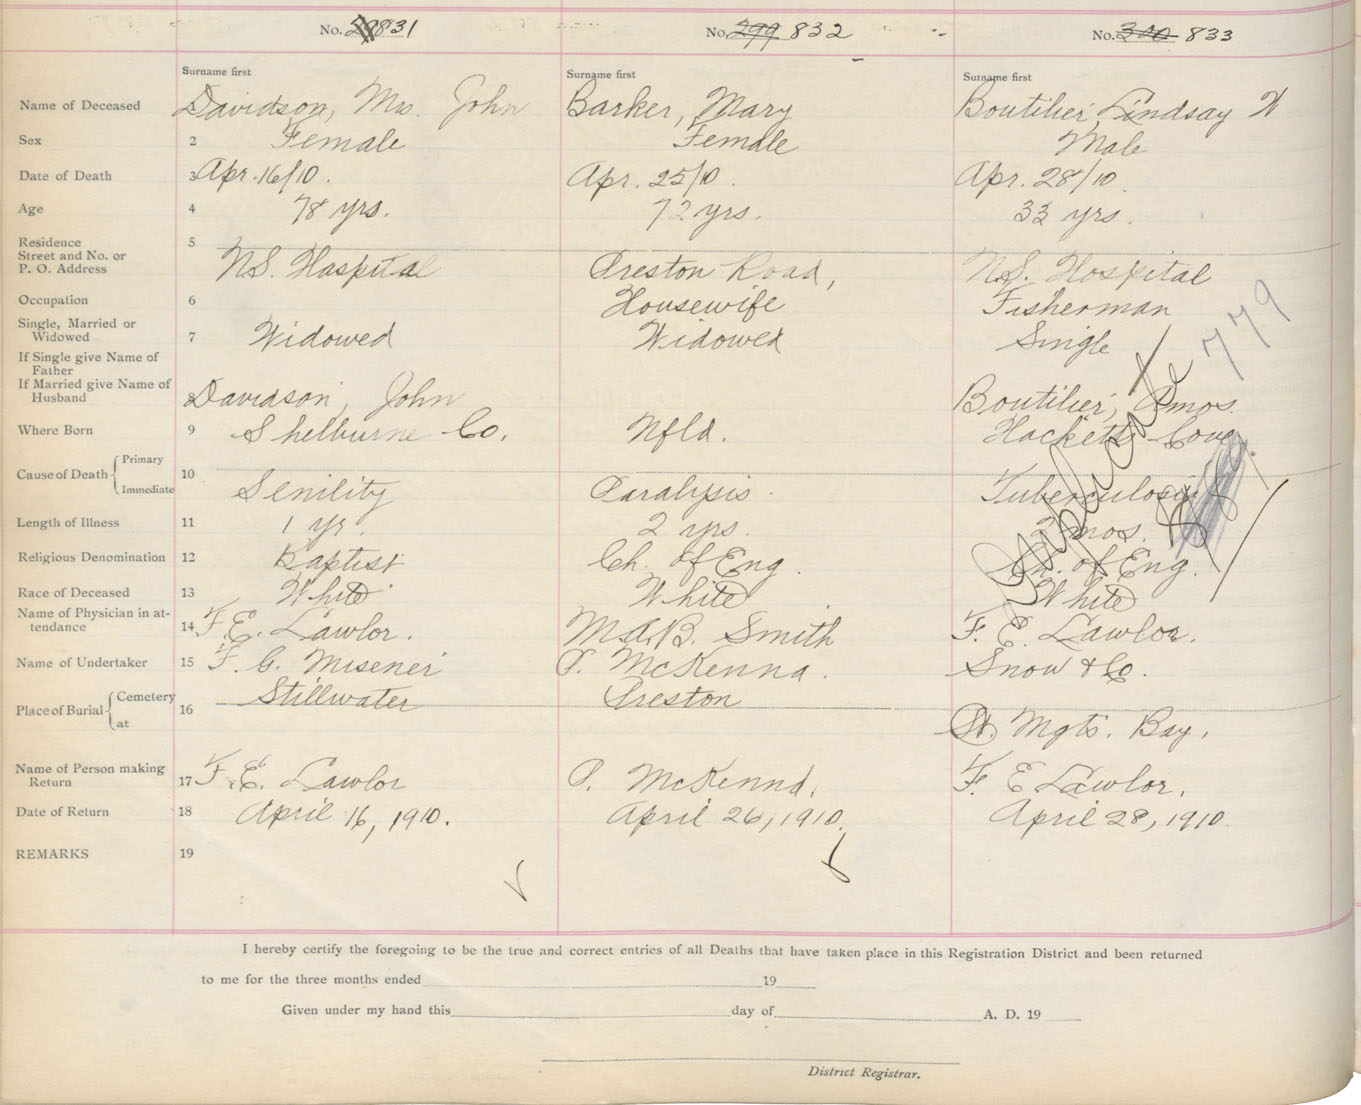 No. 831
No. 299 832
No. 300 833
Surname first
Surname first
Surname first
Name of Deceased 1 Davidson, Mrs. John
Barker, Mary
Boutilier, Lindsay W
Sex 2 Female
Female
Male
Date of Death 3 Apr. 16/10.
Apr. 25/10.
Apr. 28/10.
Age 4 78 yrs.
72 yrs.
33 yrs.
Residence 5
Street and No. or
P. O. Address
N.S. Hospital
Preston Road,
N.S. Hospital
Occupation 6
Housewife
Fisherman
Single, Married or
Widowed 7 Widowed
Widowed
Single
If Single give Name of
Father
If Married give Name of
Husband 8 Davidson, John
Boutilier, Amos.
Where Born 9 Shelburne Co.
Nfld.
Hacketts Cove.
Cause of Death Primary 10
Immediate
Senility
Paralysis.
Tuberculosis
Length of Illness 11 1 yr.
2 yrs.
mos.
Religious Denomination 12 Baptist
Ch. of Eng.
Ch. of Eng.
Race of Deceased 13 White
White
White
Name of Physician in at-
tendance 14 F. E. Lawlor.
M.A.B. Smith
F. E. Lawlor.
Name of Undertaker 15 F. C. Misener
P. McKenna.
Snow & Co.
Place of Burial Cemetery 16
at
Stillwater
Preston
St. Mgts. Bay.
Name of Person making
Return 17 F. E. Lawlor
P. McKenna.
F. E Lawlor.
Date of Return 18 April 16, 1910.
April 26, 1910.
April 28, 1910.
REMARKS 19
Duplicate
779
I hereby certify the foregoing to be the true and correct entries of all Deaths that have taken place in this Registration District and been returned
to me for the three months ended 19
Given under my hand this day of A. D. 19
District Registrar.